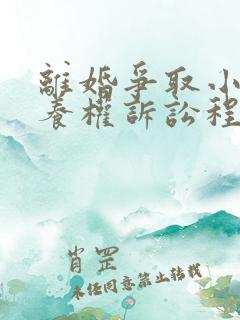 離婚爭取小
養權訴訟程
肖罡
未经同意禁止转载